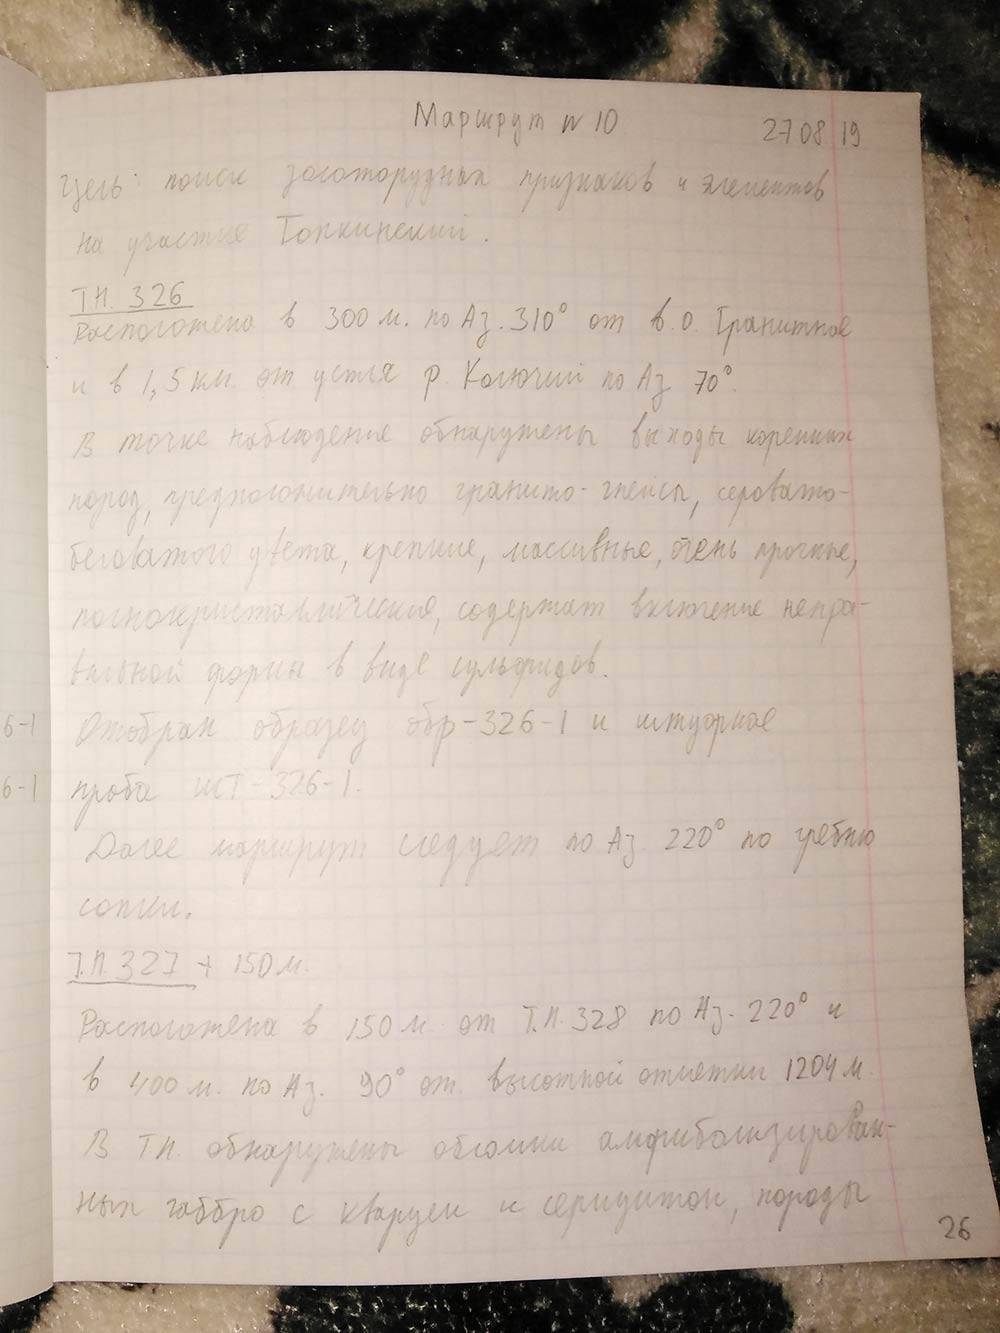 Маршрут № 10 27 08 19
Цель: поиск золоторудных признаков и элементов
на участке Топкинский.
Т.Н. 326
Расположена в 300 м. по Аз. 310° от в.о. Гранитное
и в 1,5 км. от устья р. Колючий по Аз 70°.
В точке наблюдение обнаружены выходы коренных
пород, предположительно гранито-гнейсы, серовато-
беловатого цвета, крепкие, массивные, очень прочные,
полнокристаллические, содержат включение непра-
вильной форми в виде сульфидов.
6-1 Отобран образец обр-326-1 и штуфное
6-1 проба шт-326-1.
Далее маршрут следует по Аз 220° по гребню
сопки.
Т.Н. 327 + 150 м.
Расположена в 150 м. от Т.Н. 328 по Аз. 220° и
в 400 м. по Аз. 90° от. высотной отметки 1204 м.
В ТН. обнаружены обломки амфиболизирован-
ных габбро с кварцем и серицитом, породы
26